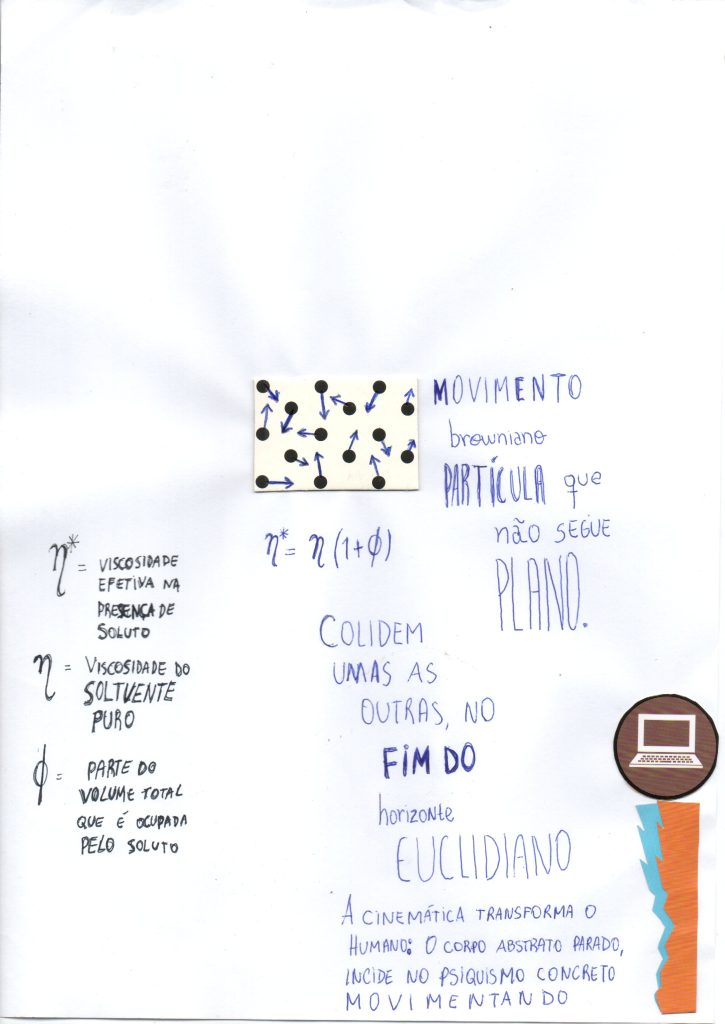 MOVIMENTO
browniano
PARTÍCULA que
não SEGUE
PLANO.
η* = η (1+ϕ)
η* = VISCOSIDADE
EFETIVA NA
PRESENÇA DE
SOLUTO
η = VISCOSIDADE DO
SOLTVENTE
PURO
ϕ = PARTE DO
VOLUME TOTAL
QUE É OCUPADA
PELO SOLUTO
COLIDEM
UMAS AS
OUTRAS, NO
FIM DO
horizonte
EUCLIDIANO
A CINEMÁTICA TRANSFORMA O
HUMANO: O CORPO ABSTRATO PARADO,
INCIDE NO PSIQUISMO CONCRETO
MOVIMENTANDO